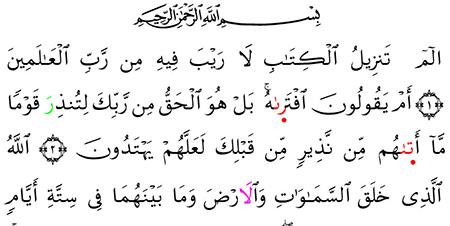 بِسْمِ اللَّهِ الرَّحْمَٰنِ الرَّحِيمِ
الٓمٓ تَنزِيلُ الْكِتَٰبِ لَا رَيْبَ فِيهِ مِن رَّبِّ الْعَٰلَمِينَ
﴿١﴾ أَمْ يَقُولُونَ افْتَرِىٰهُ ۖ بَلْ هُوَ الْحَقُّ مِن رَّبِّكَ لِتُنذِرَ قَوْمًا
مَّا أَتىٰهُم مِّن نَّذِيرٍ مِّن قَبْلِكَ لَعَلَّهُمْ يَهْتَدُونَ ﴿٢﴾ اللَّهُ
الَّذِى خَلَقَ السَّمَٰوَٰتِ وَالَارْضَ وَمَا بَيْنَهُمَا فِى سِتَّةِ أَيَّامٍ